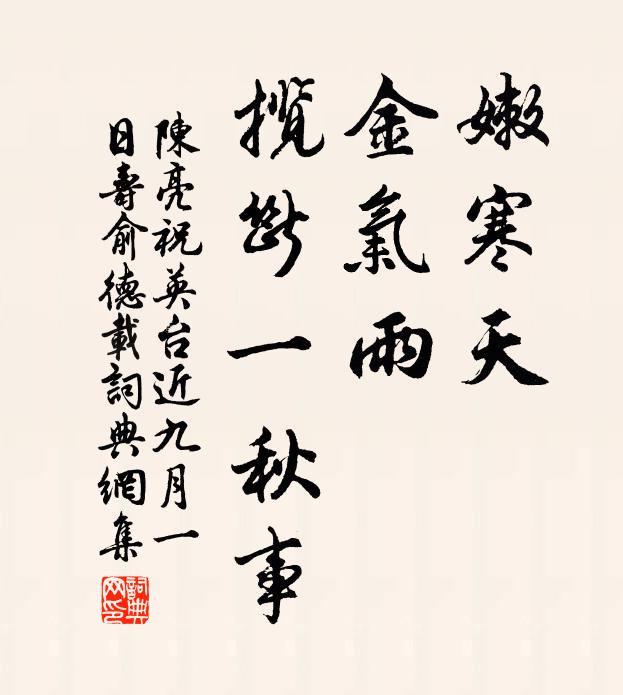 嫩寒天
金氣雨
攪斷一秋事
陳亮祝英台近九月一
日壽俞德載詞典網集
詞典
网印